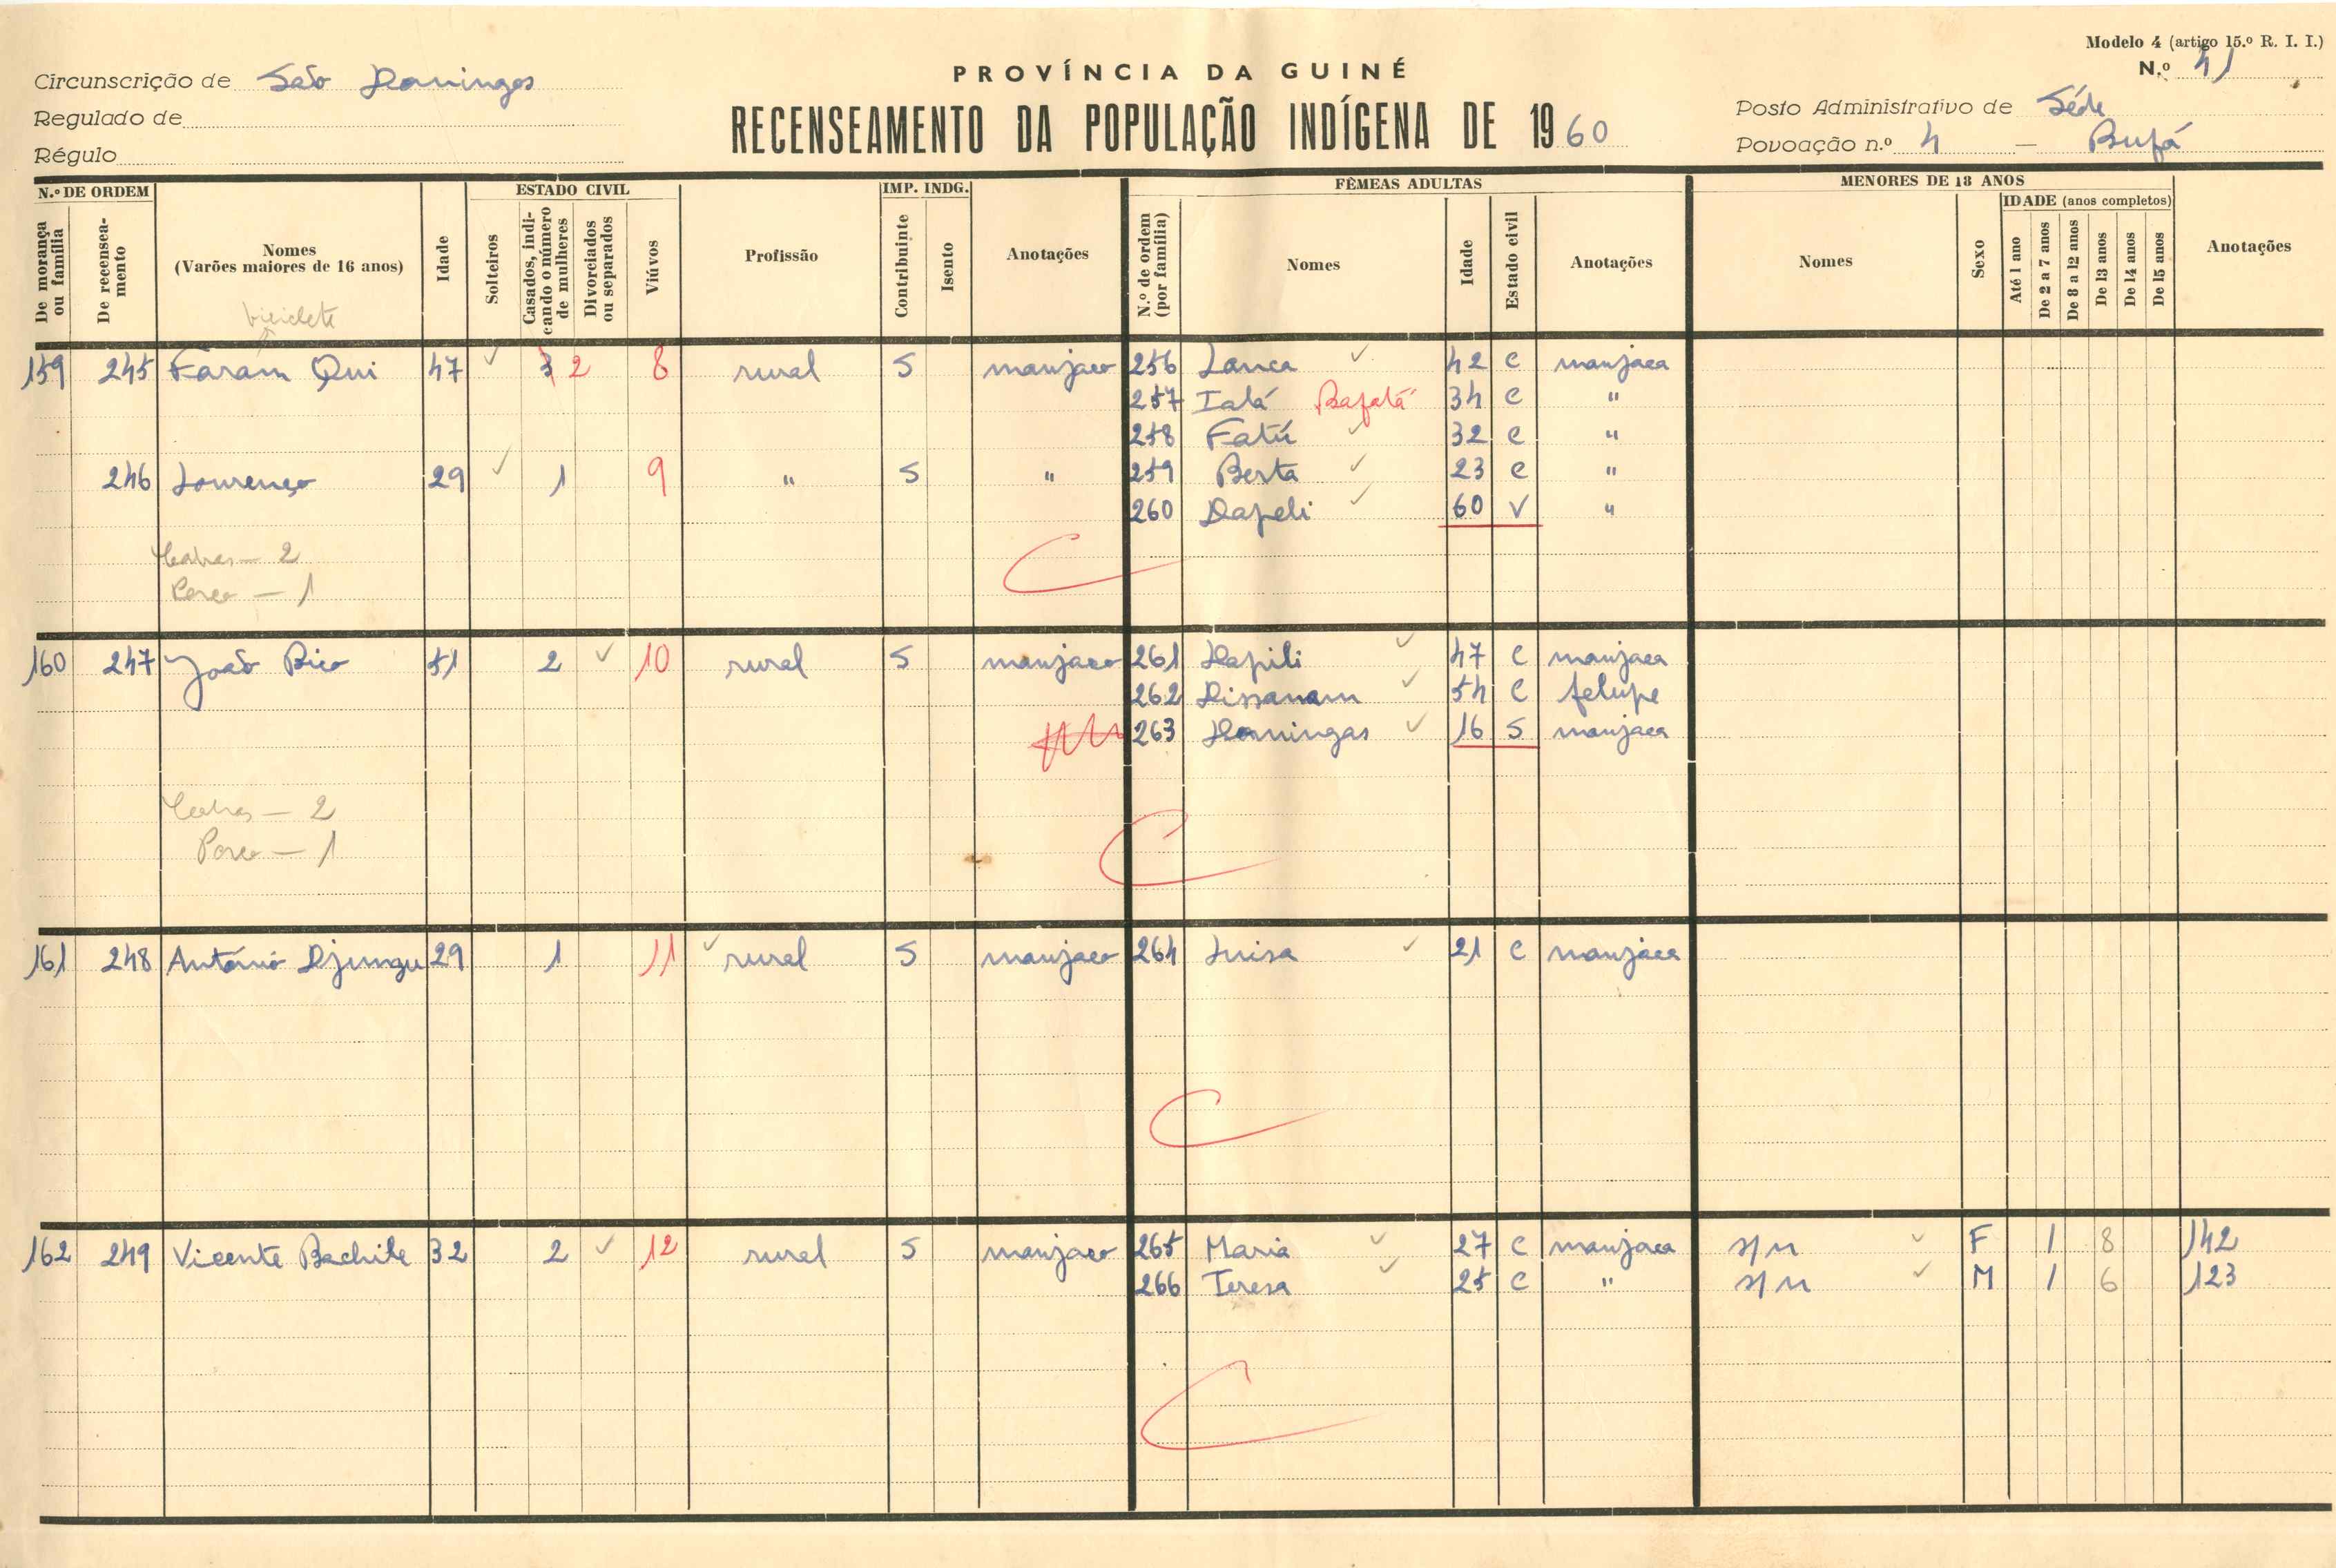 Modelo 4 (artigo 15.º R. I. I.)
N.º 41
PROVÍNCIA DA GUINÉ
RECENSEAMENTO DA POPULAÇÃO INDÍGENA DE 1960
Circunscrição de São Domingos
Regulado de
Régulo
Posto Administrativo de Séde
Povoação n.º 4 — Bufá
N.º DE ORDEM
De morança ou família
De recensea-mento
Nomes
(Varões maiores de 16 anos)
Idade
ESTADO CIVIL
Solteiros
Casados, indi-cando o número de mulheres
Divorciados ou separados
Viúvos
Profissão
IMP. INDG.
Contribuinte
Isento
Anotações
FÊMEAS ADULTAS
N.º de ordem (por família)
Nomes
Idade
Estado civil
Anotações
MENORES DE 18 ANOS
Nomes
Sexo
IDADE (anos completos)
Até 1 ano
De 2 a 7 anos
De 8 a 12 anos
De 13 anos
De 14 anos
De 15 anos
Anotações
biciclete
159 245 Faram Qui 47 3 2 8 rural S manjaco 256 Lanca 42 C manjaca
257 Ialá Bafatá 34 C "
258 Fatú 32 C "
246 Lourenço 29 1 9 " S " 259 Berta 23 C "
260 Dapeli 60 V "
Cabras — 2
Porco — 1
160 247 João Bico 51 2 10 rural S manjaco 261 Hapili 47 C manjaca
262 Dissanam 54 C felupe
263 Domingas 16 S manjaca
Cabras — 2
Porco — 1
161 248 António Djungu 29 1 11 rural S manjaco 264 Luisa 21 C manjaca
162 249 Vicente Bachile 32 2 12 rural S manjaco 265 Maria 27 C manjaca s/n F 1 8 142
266 Teresa 25 C " s/n M 1 6 123